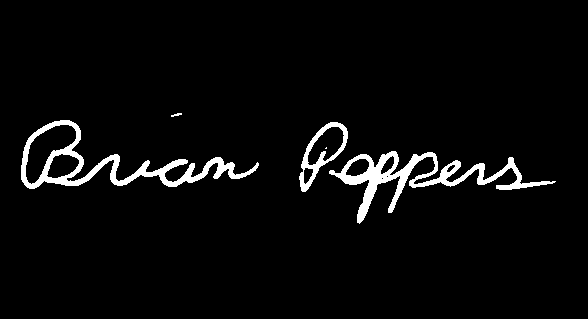 Brian Poppers